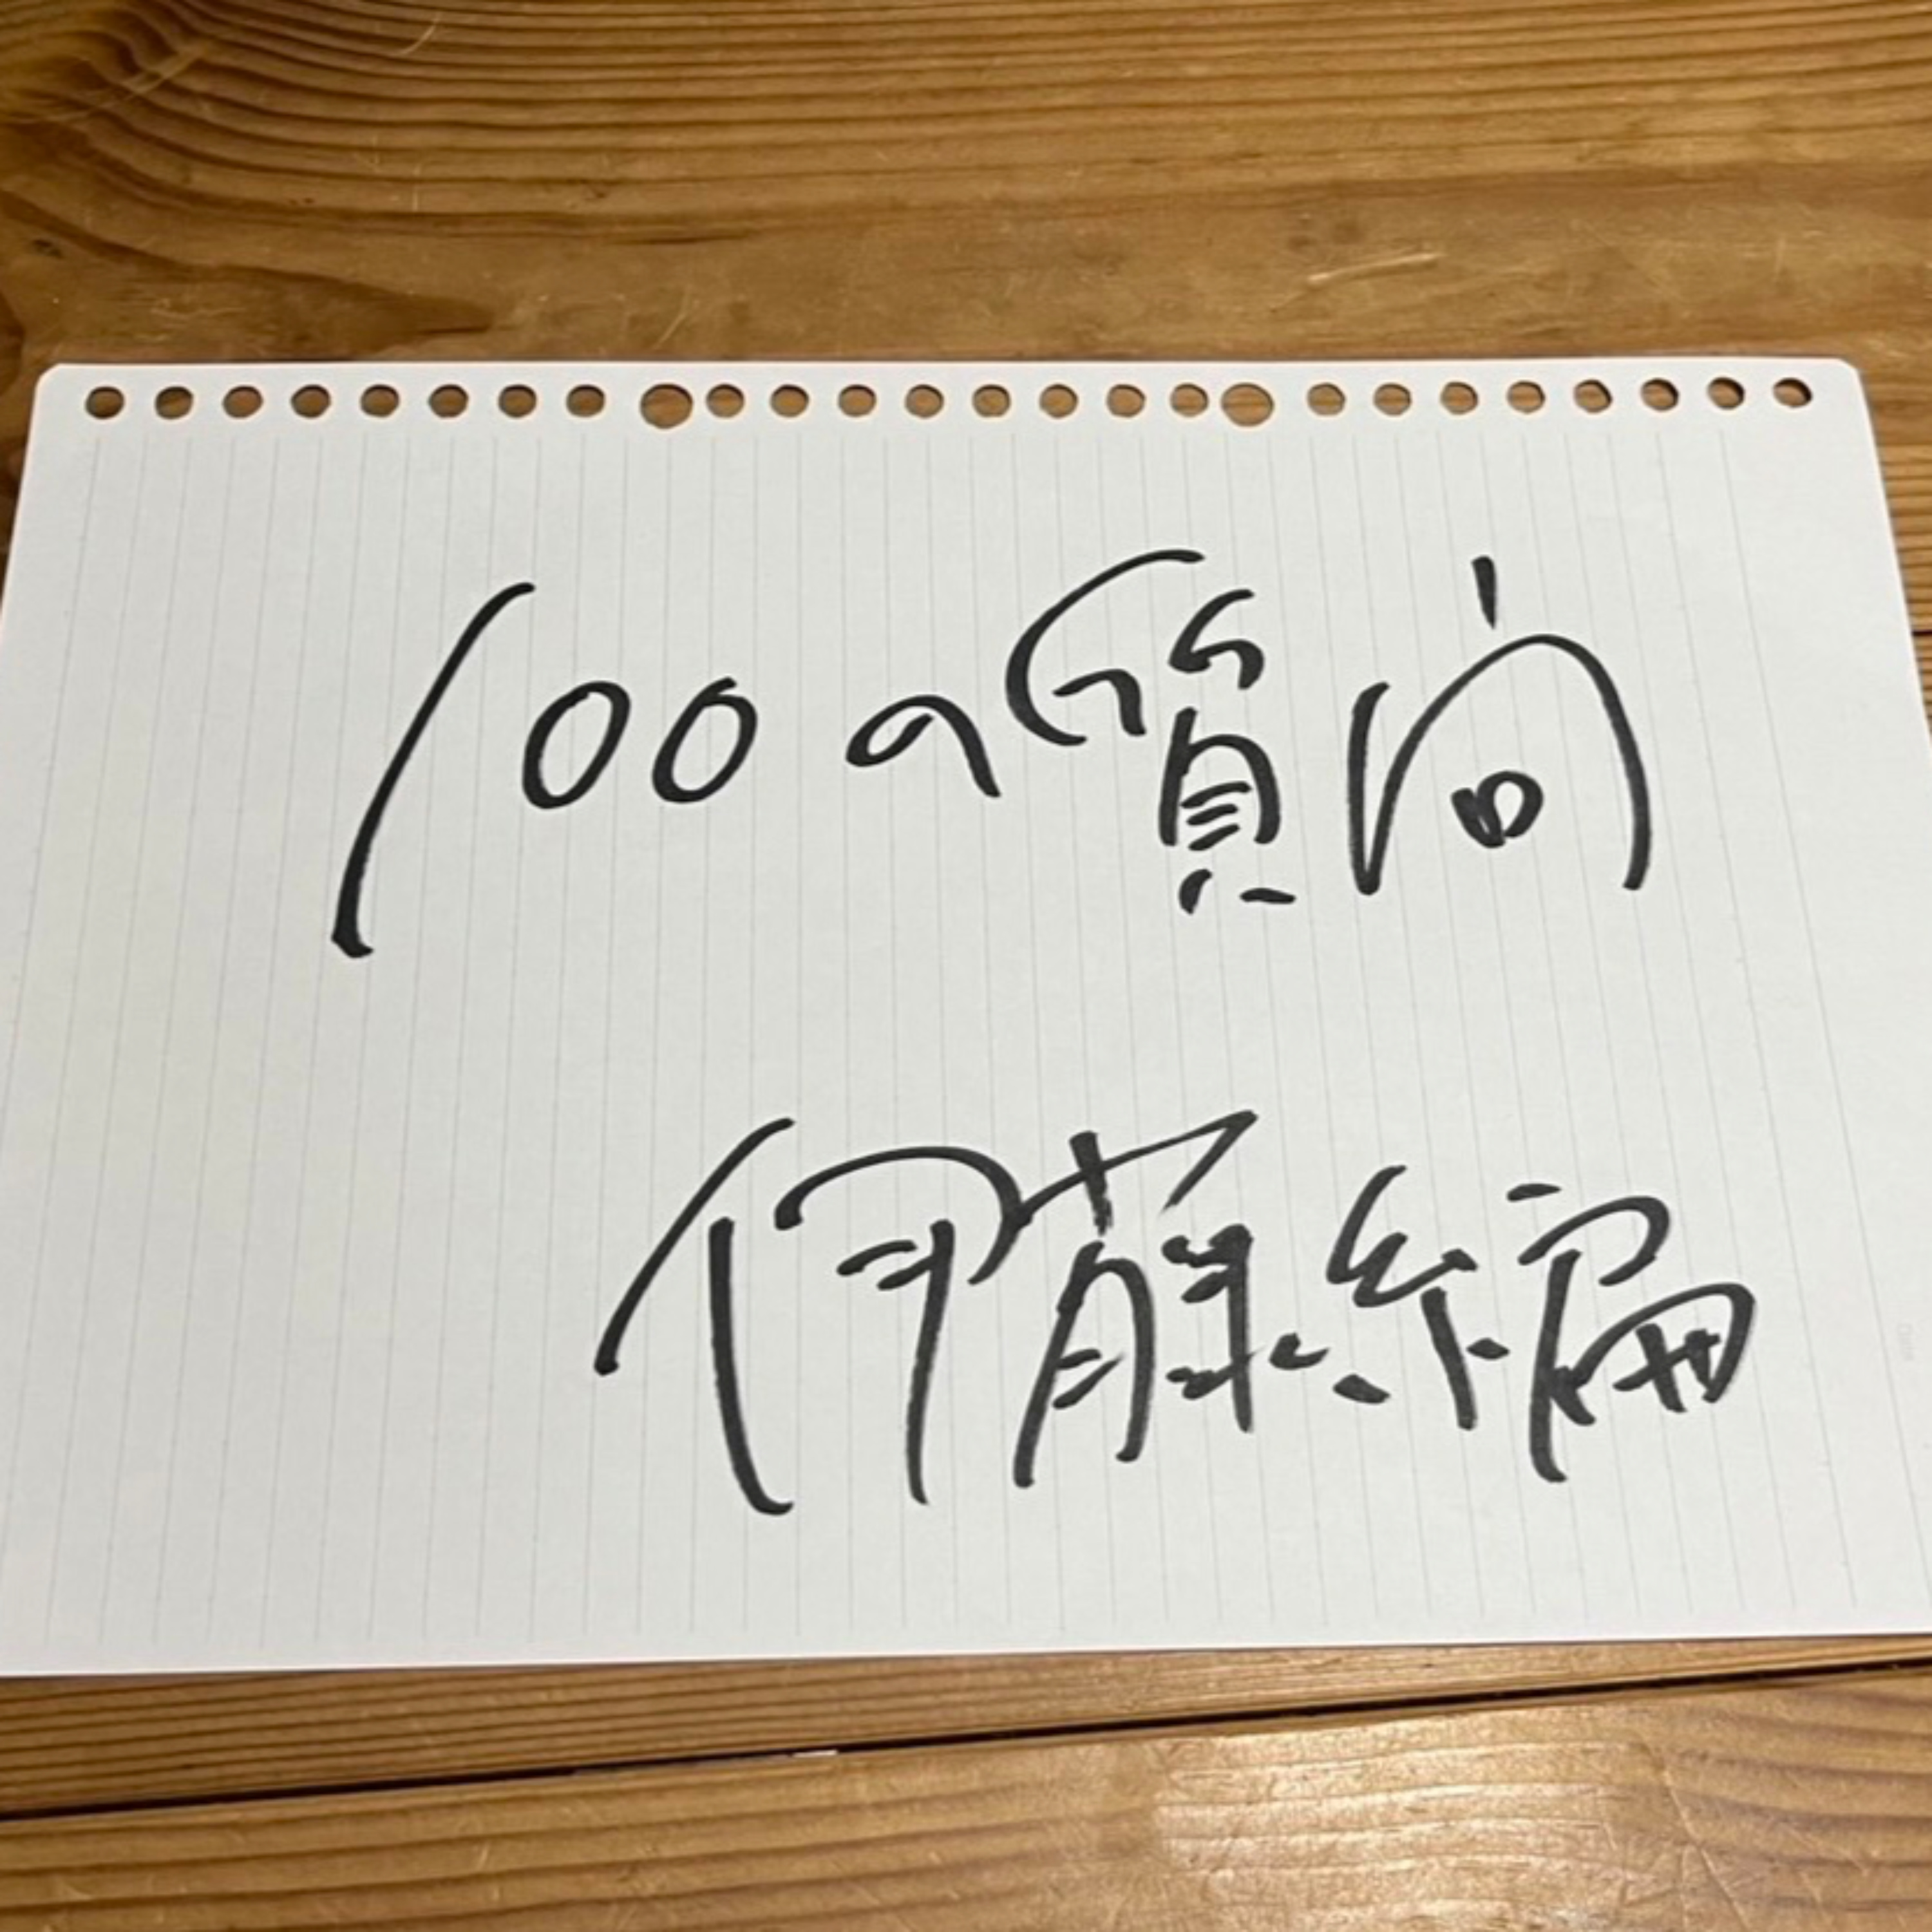 100の質問
伊藤編